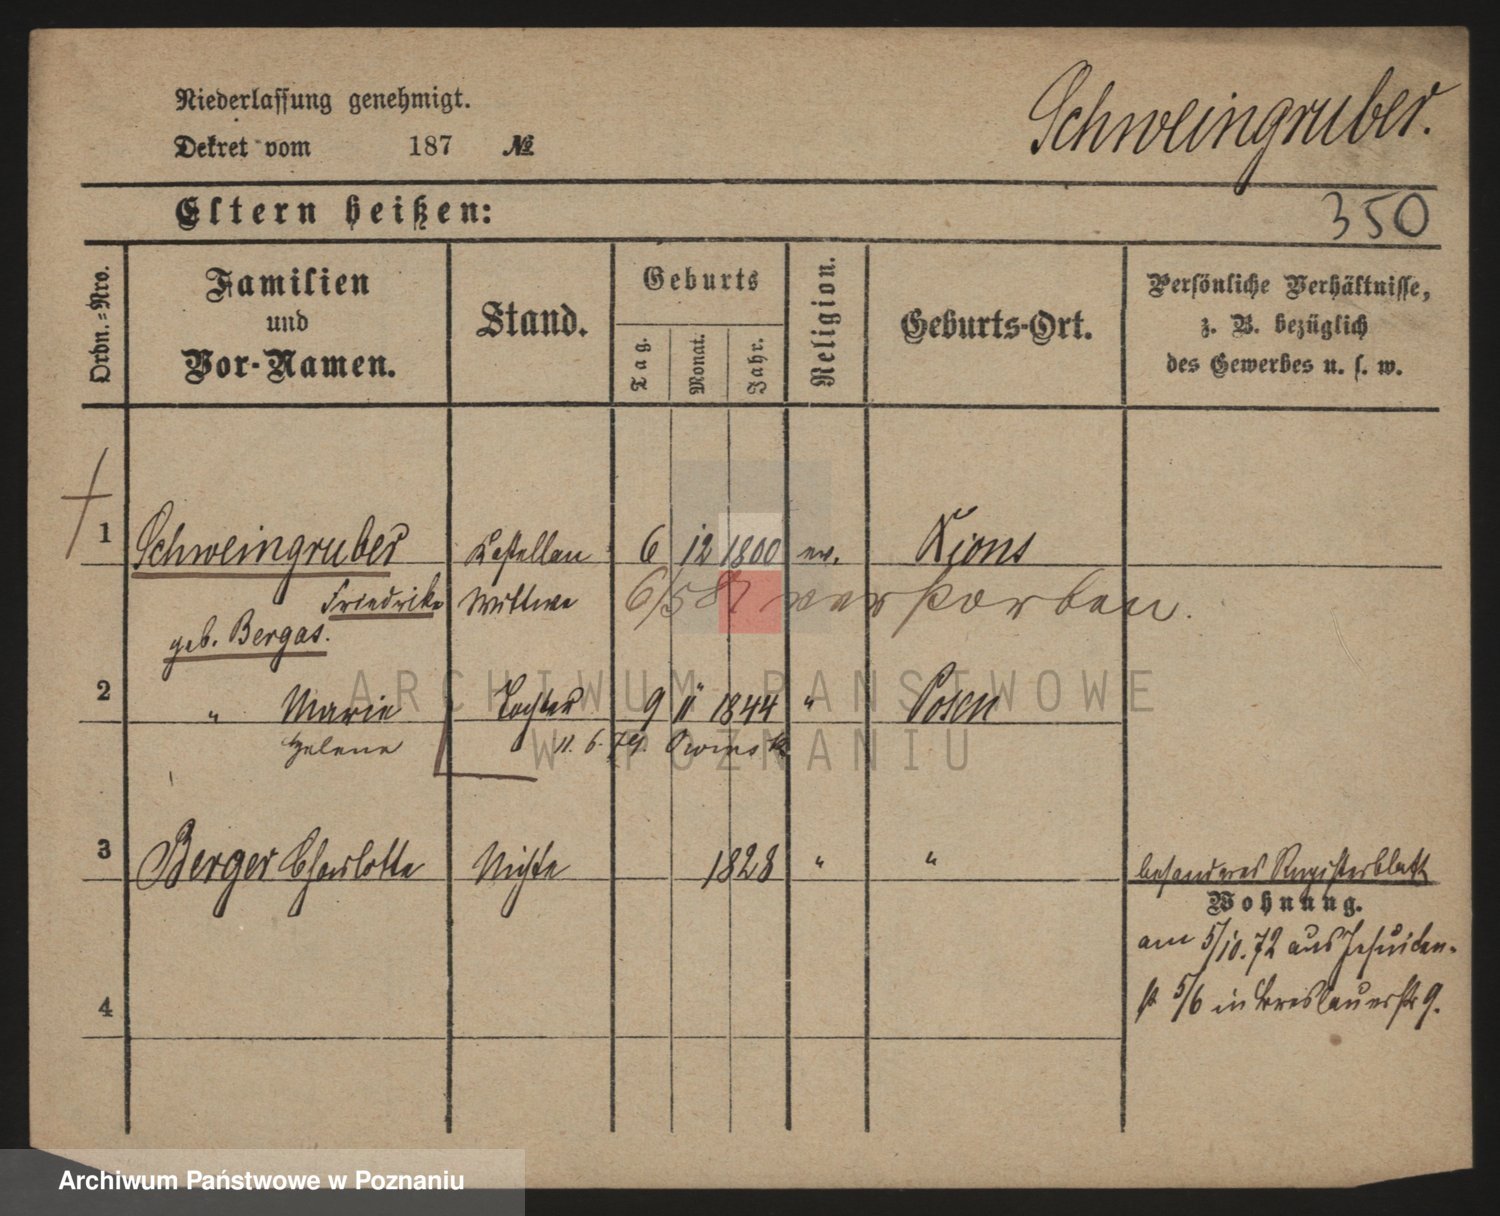 Niederlassung genehmigt.
Schweingruber.
Dekret vom 187 №
Eltern heißen:
350
Ordn.-Nro.
Familien
und
Vor-Namen.
Stand.
Geburts
Tag.
Monat.
Jahr.
Religion.
Geburts-Ort.
Persönliche Verhältnisse,
z. B. bezüglich
des Gewerbes u. s. w.
1 Schweingruber Kastellan 6 12 1800 ev. Xions
Friedrike Wittwe 6/5 87 verstorben.
geb. Bergas.
2 " Marie Tochter 9 11 1844 " Posen
Helene 11. 6. 79. Owinsk
3 Berger Charlotte Nichte 1828 " " besonderes Registerblatt
Wohnung.
am 5/10. 72 aus Jesuiten-
st 5/6 in Breslauerstr 9.
4
ARCHIWUM PAŃSTWOWE
W POZNANIU
Archiwum Państwowe w Poznaniu